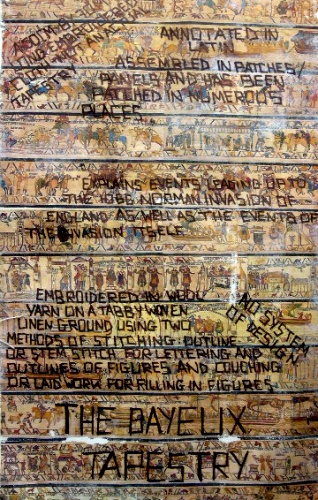 TAPESTRY
ANNOTATED IN
LATIN
ASSEMBLED IN PATCHES/
PANELS AND HAS BEEN
PATCHED IN NUMEROUS
PLACES
EXPLAINS EVENTS LEADING UP TO
THE 1066 NORMAN INVASION OF
ENGLAND AS WELL AS THE EVENTS OF
THE INVASION ITSELF
EMBROIDERED IN WOOL
YARN ON A TABBY WOVEN
LINEN GROUND USING TWO
METHODS OF STITCHING: OUTLINE
OR STEM STITCH FOR LETTERING AND
OUTLINES OF FIGURES AND COUCHING
OR LAID WORK FOR FILLING IN FIGURES
NO SYSTEM
OF DESIGN
THE BAYEUX
TAPESTRY